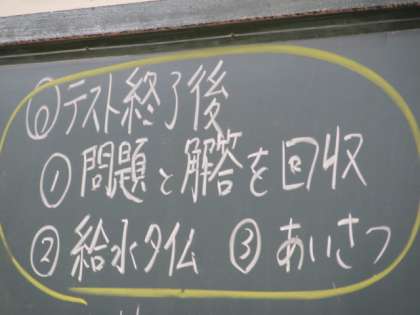 ⑥テスト終了後
①問題と解答を回収
②給水タイム ③あいさつ